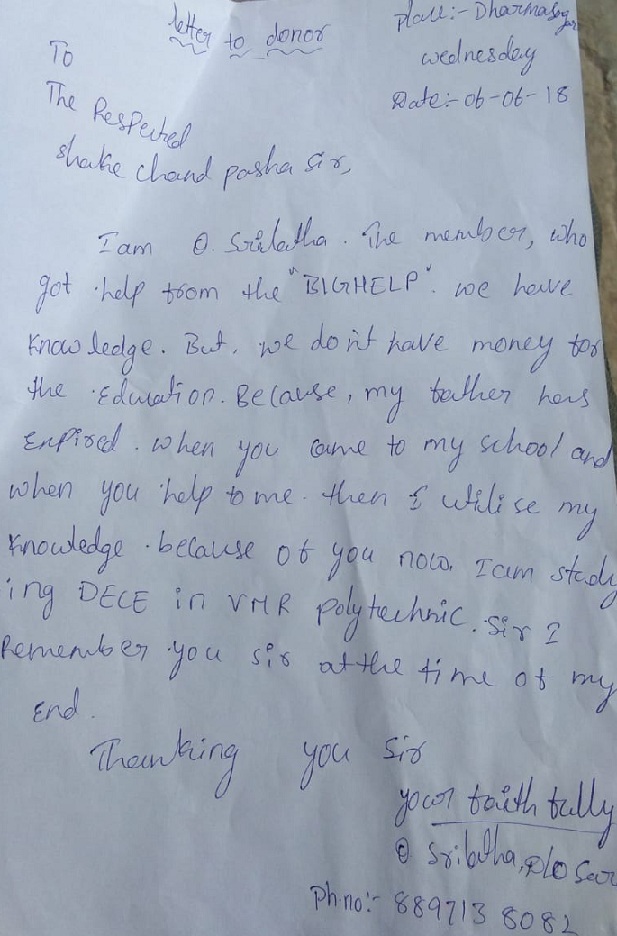 letter to donor
place:- Dharmasagar
wednesday
Date:- 06-06-18
To
The Respected
shake chand pasha sir,
I am O. Srilatha. The member, who
got help from the "BIGHELP". we have
knowledge. But, we don't have money for
the Education. Because, my father has
Expired. when you came to my school and
when you help to me. then I utilise my
knowledge. because of you now. I am study
ing DECE in VMR polytechnic. Sir I
Remember you sir at the time of my
End.
Thanking you sir
your faith fully
O. Srilatha, D/o Sar
Ph.no:- 889713 8082